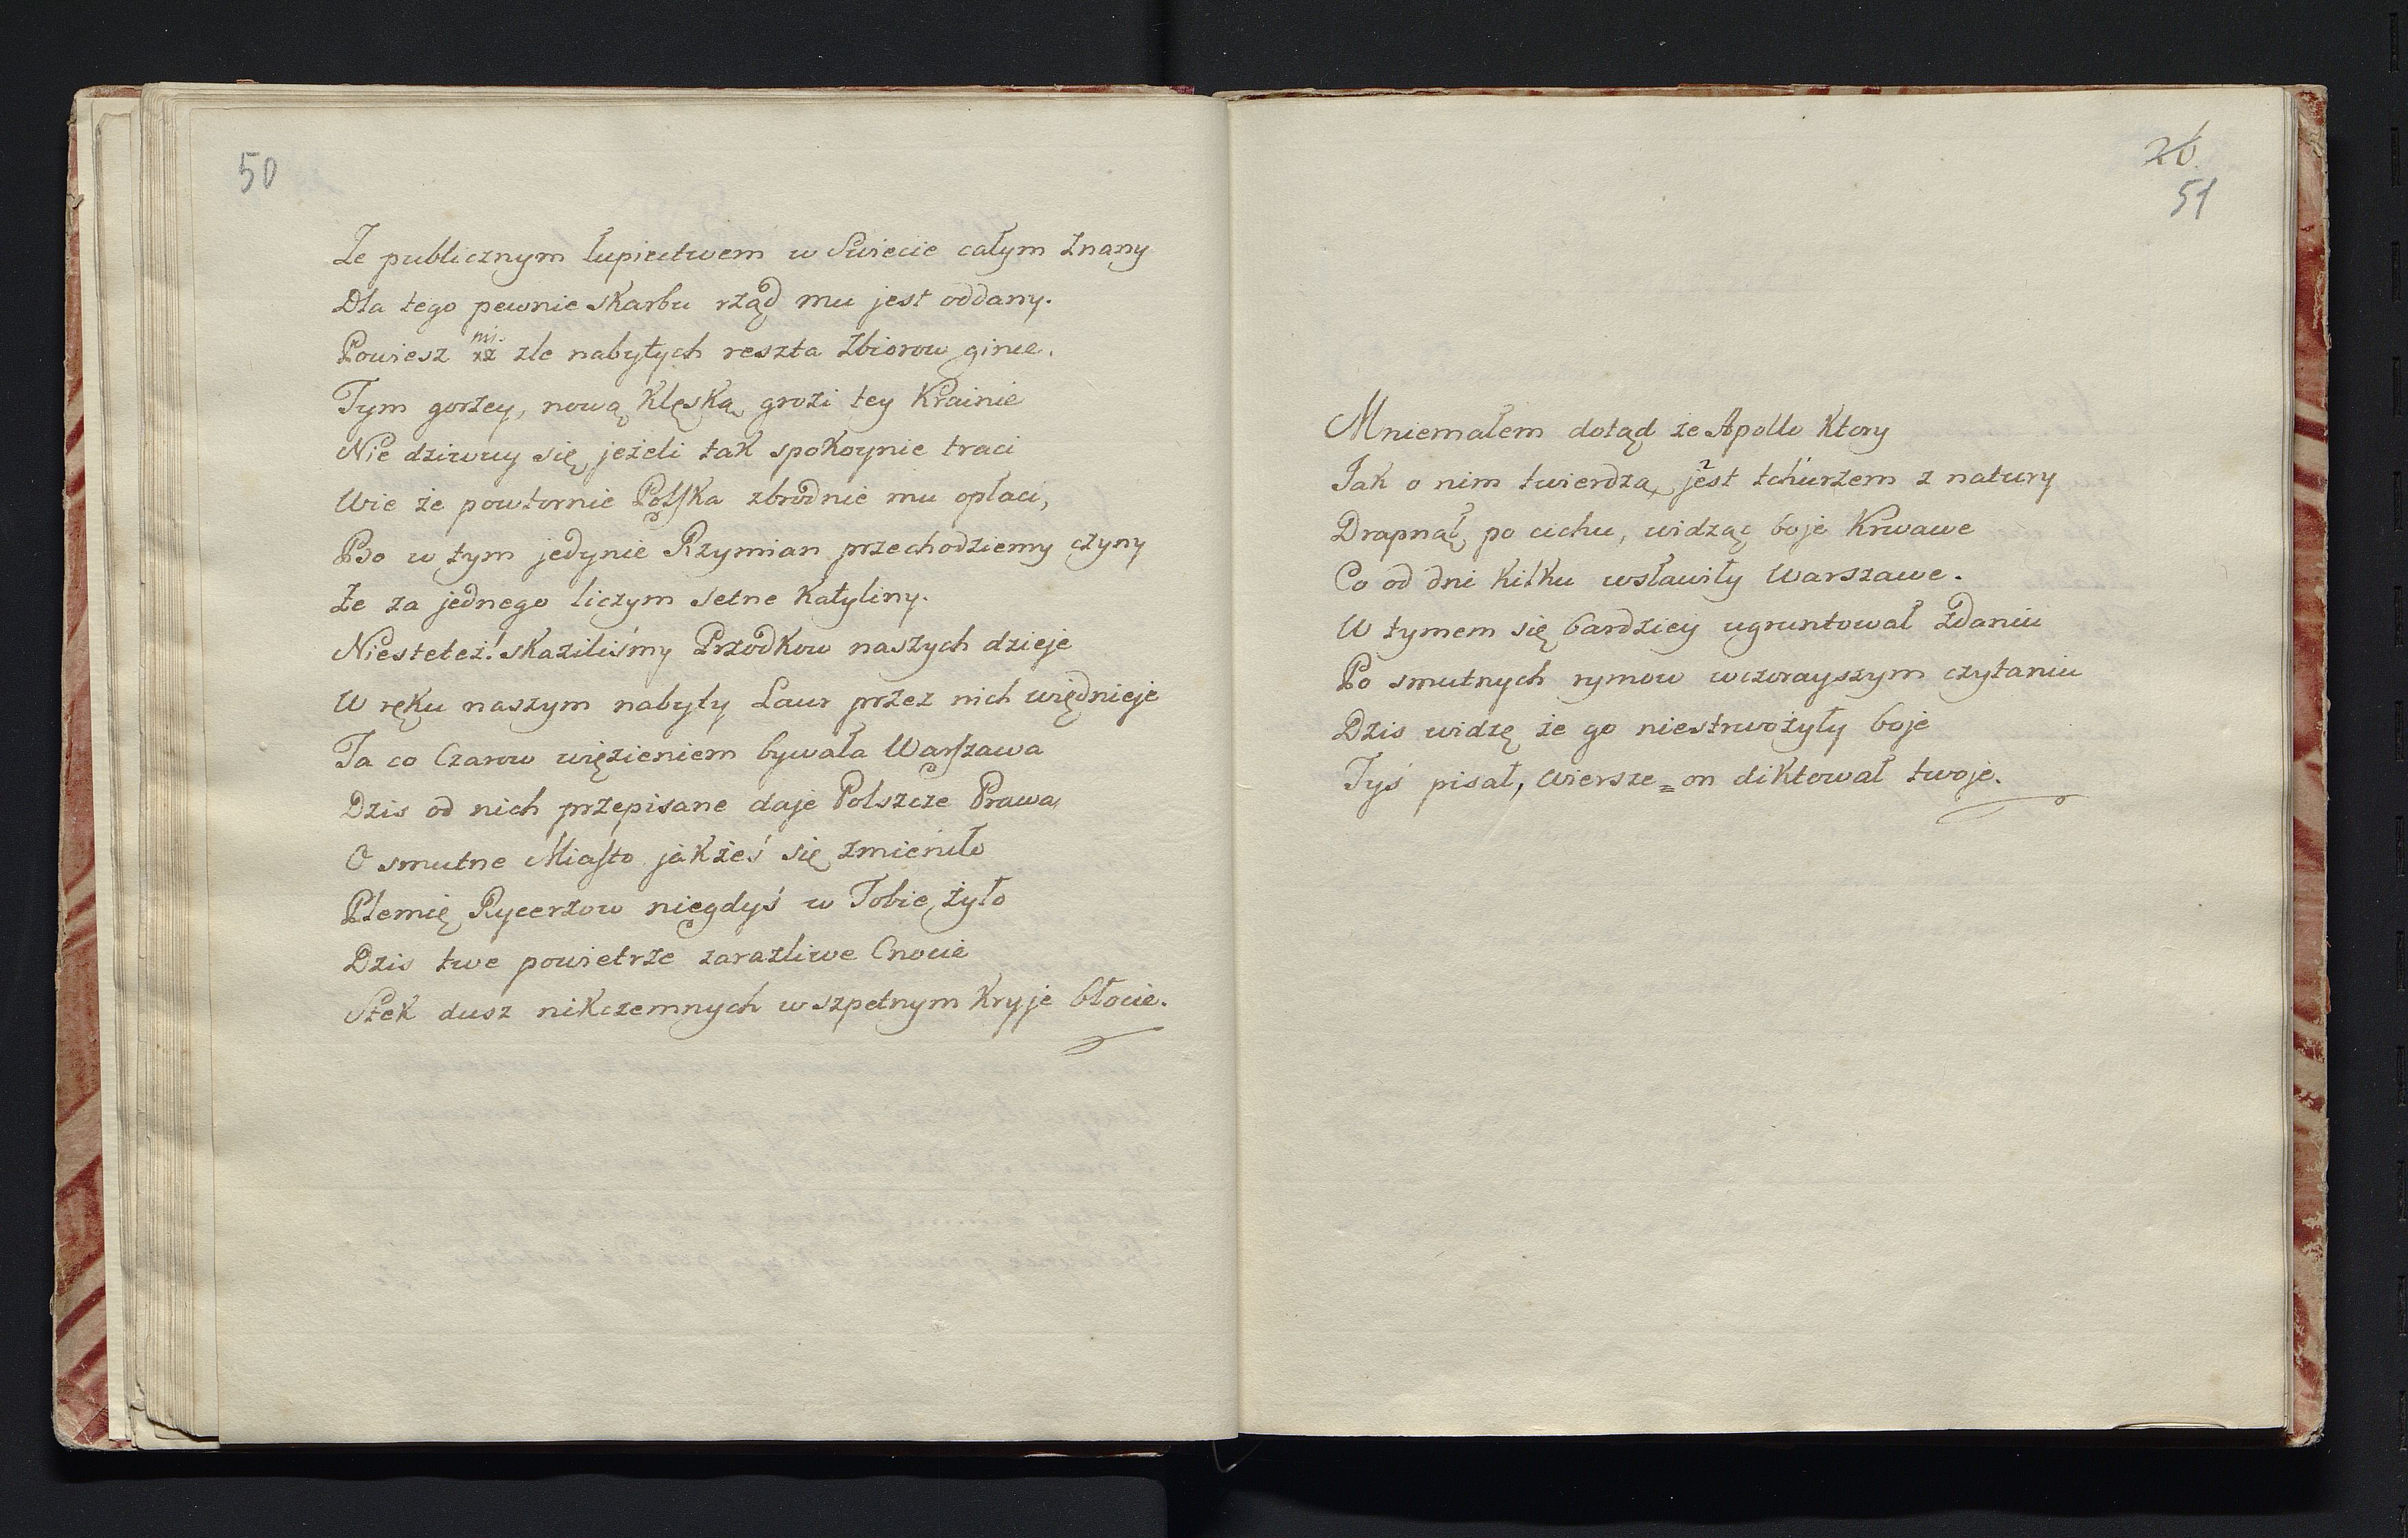 50
Że publicznym łupiectwem w Swiecie całym znany
Dla tego pewnie skarbu rząd mu jest oddany.
Powiesz mi. zle nabytych reszta zbiorow ginie.
Tym gorzey, nową klęską grozi tey Krainie
Nie dziwuy się, jeżeli tak spokoynie traci
Wie że powtornie Polska zbrodnie mu opłaci,
Bo w tym jedynie Rzymian przechodziemy czyny
Że za jednego liczym setne Katyliny.
Niesteteż! skaziliśmy Przodkow naszych dzieje
W ręku naszym nabyty Laur przez nich więdnieje
Ta co Czarow więzieniem bywała Warszawa
Dzis od nich przepisane daje Polszcze Prawa
O smutne Miasto jakżeś się zmieniło
Plemię Rycerzow niegdyś w Tobie żyło
Dzis twe powietrze zarazliwe Cnocie
Stek dusz nikczemnych w szpetnym kryje błocie.
26
51
Mniemałem dotąd że Apollo ktory
Jak o nim twierdzą, jest tchurzem z natury
Drapnął po cichu, widząc boje krwawe
Co od dni kilku wsławiły Warszawe.
W tymem się bardziey ugruntował zdaniu
Po smutnych rymow wczorayszym czytaniu
Dzis widzę że go niestrwożyły boje
Tyś pisał, wiersze = on diktował twoje.